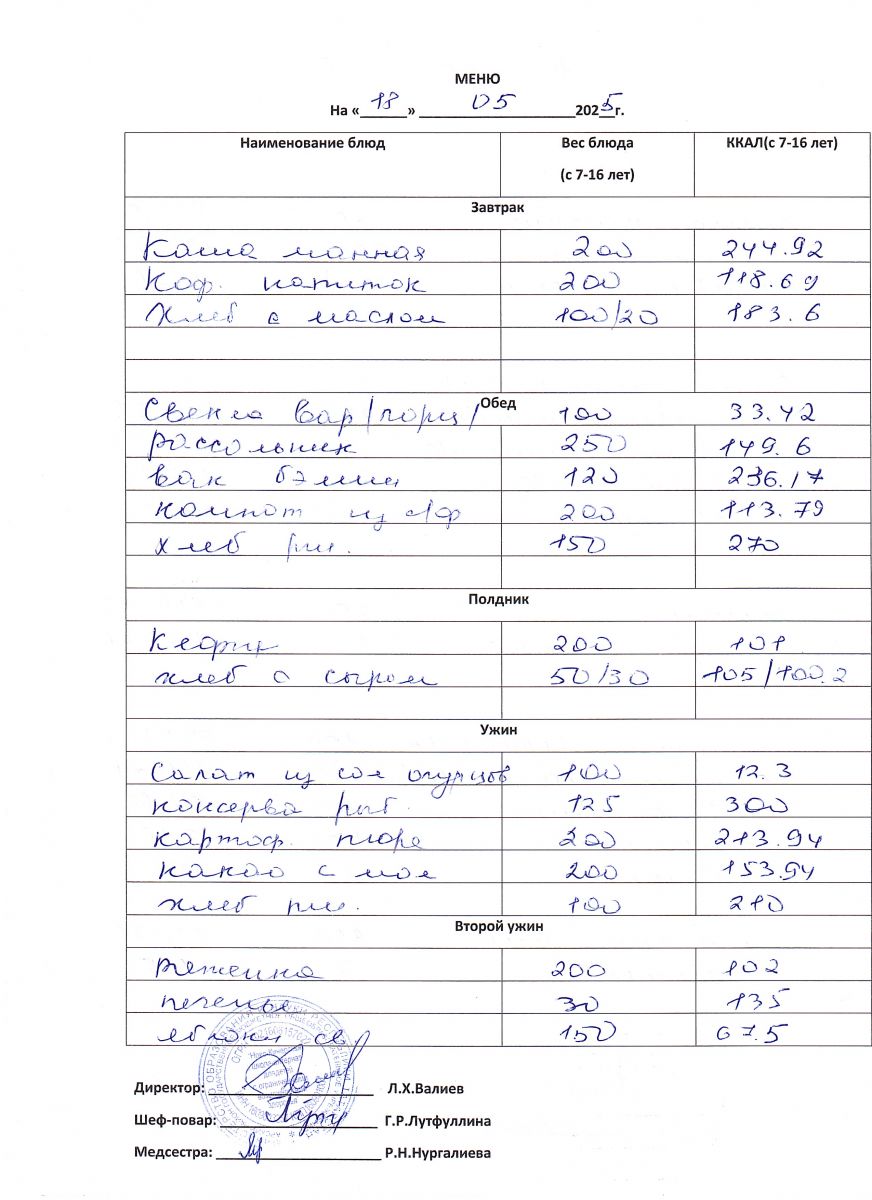 МЕНЮ
На «18» 05 2025г.
Наименование блюд Вес блюда (с 7-16 лет) ККАЛ(с 7-16 лет)
Завтрак
Каша манная 200 244.92
Коф. напиток 200 118.69
Хлеб с маслом 100/20 183.6
Обед
Свекла вар/порц/ 100 33.42
рассольник 250 149.6
вак бэлиш 120 236.17
компот из с/ф 200 113.79
хлеб рж. 150 270
Полдник
Кефир 200 101
хлеб с сыром 50/30 105/100.2
Ужин
Салат из сол огурцов 100 12.3
консерва рыб. 125 300
картоф. пюре 200 213.94
какао с мол 200 153.94
хлеб рж. 100 210
Второй ужин
Ряженка 200 102
печенье 30 135
яблоки св 150 67.5
Директор: Л.Х.Валиев
Шеф-повар: Г.Р.Лутфуллина
Медсестра: Р.Н.Нургалиева